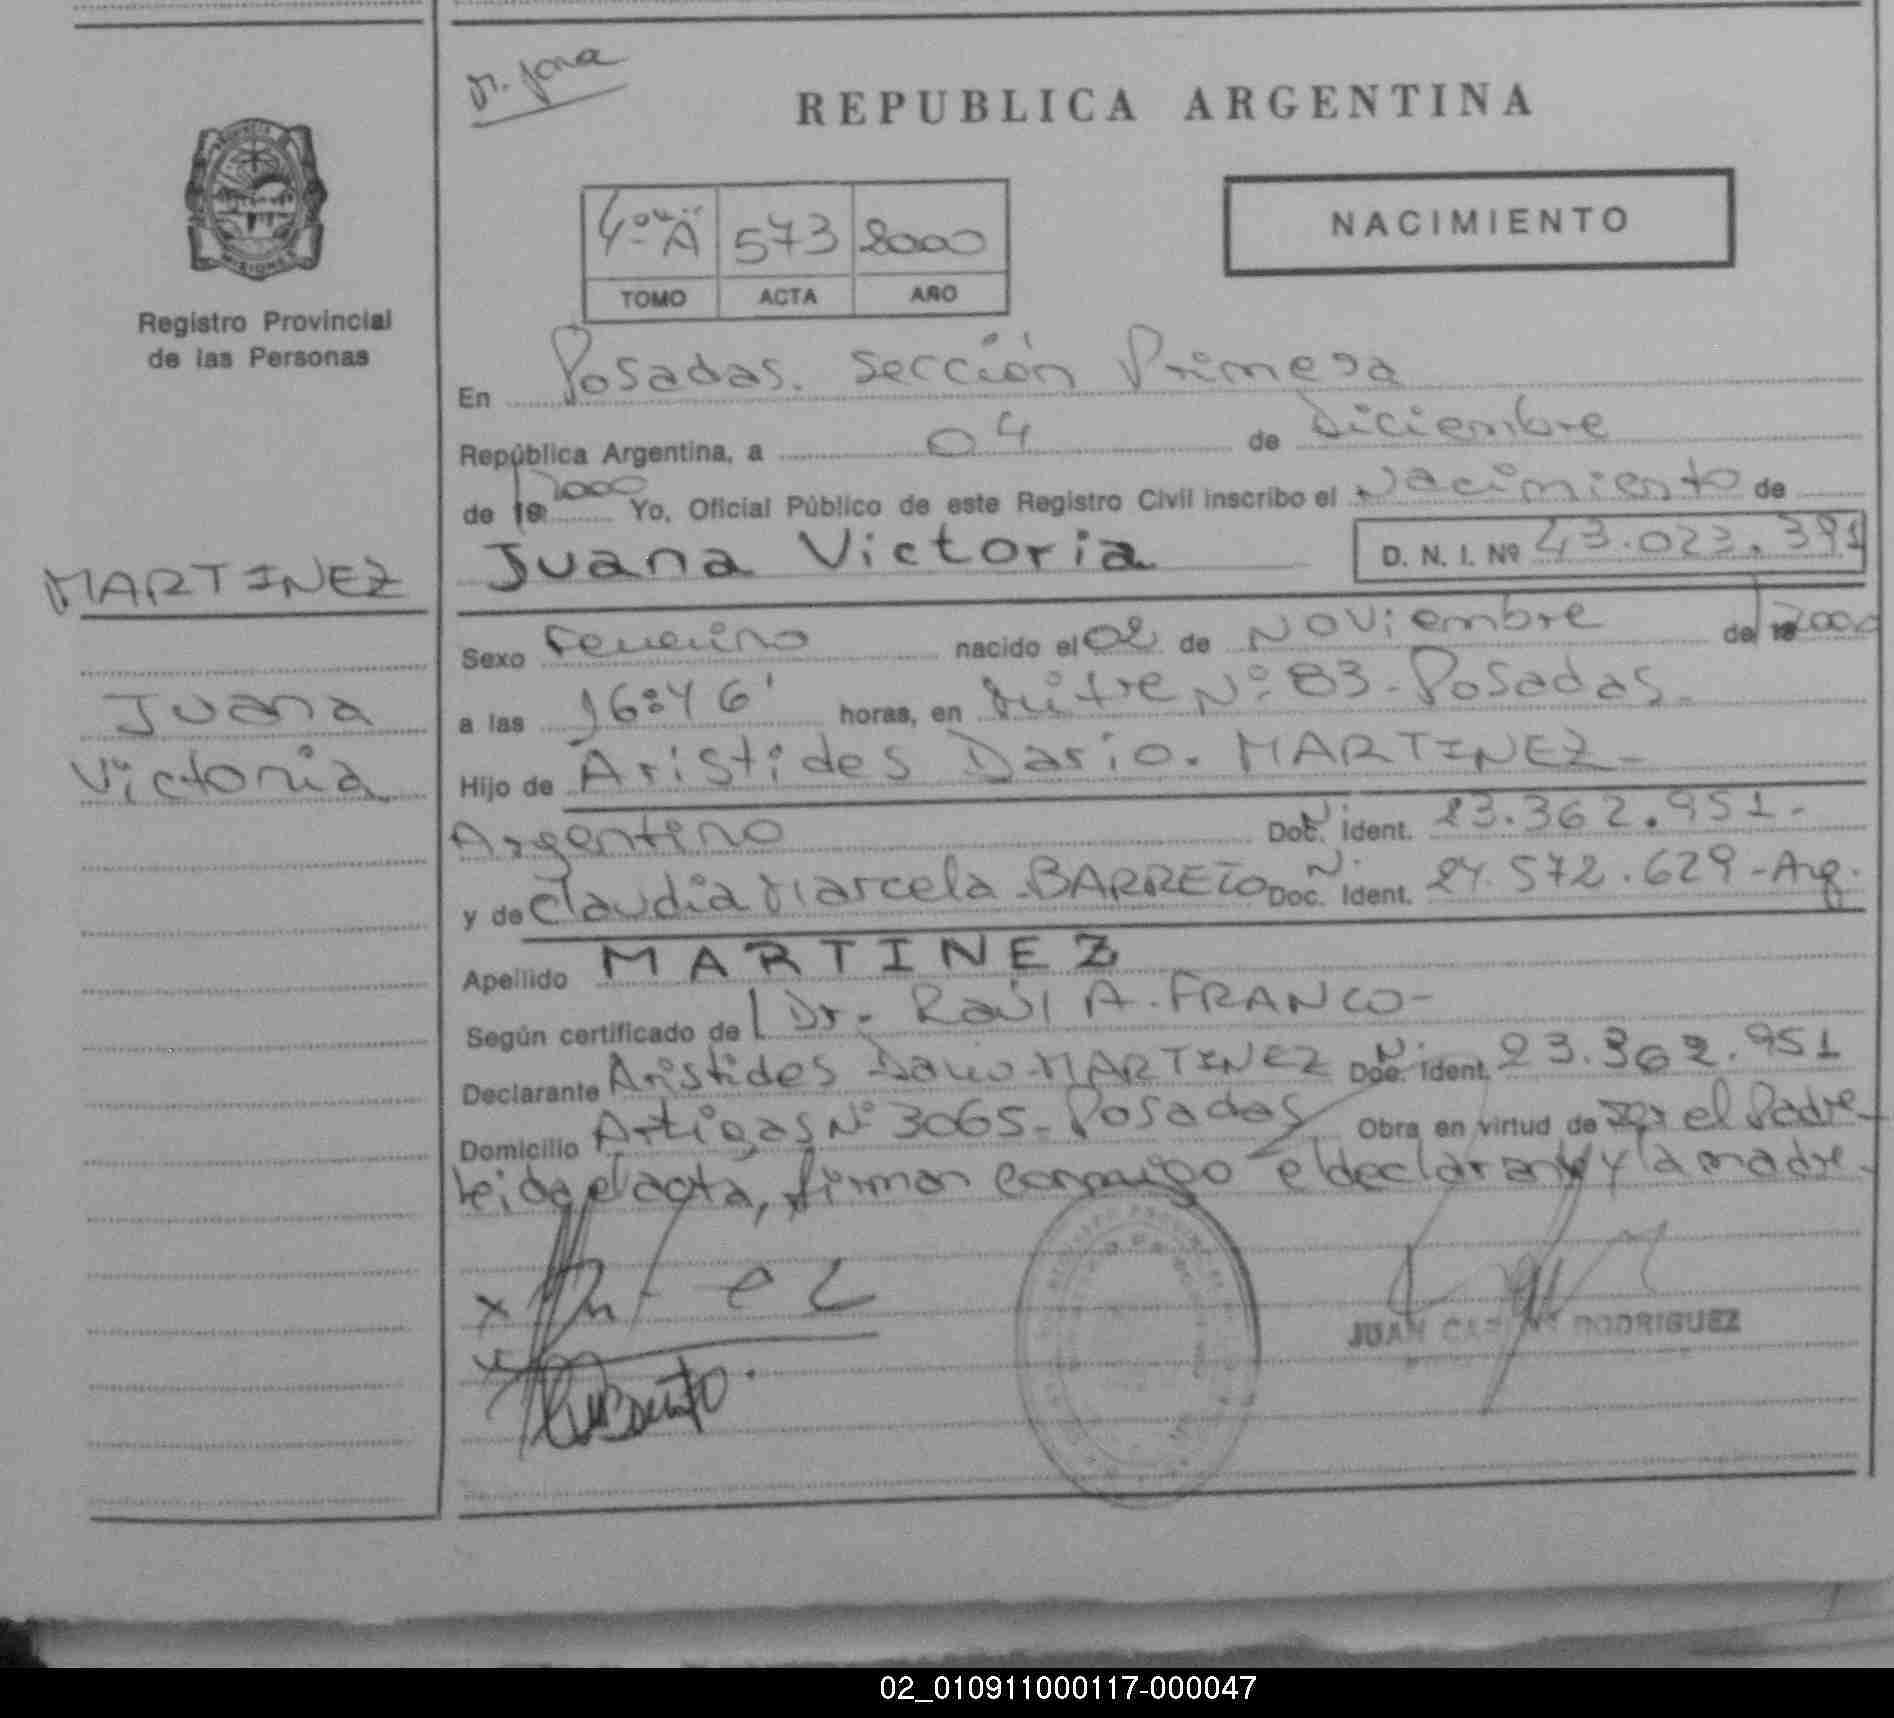 REPUBLICA ARGENTINA
NACIMIENTO
4º "A" 573 2000
TOMO ACTA AÑO
Registro Provincial
de las Personas
En Posadas. Sección Primera
República Argentina, a 04 de Diciembre
de 19 2000 Yo, Oficial Público de este Registro Civil inscribo el Nacimiento de
Juana Victoria D. N. I. Nº 43.023.391
MARTINEZ
Juana
Victoria
Sexo Femenino nacido el 02 de Noviembre de 19 2000
a las 16:46' horas, en Mitre Nº 83 - Posadas -
Hijo de Aristides Dario. MARTINEZ -
Argentino Doc. Ident. 23.362.951 -
y de Claudia Marcela BARRETO Doc. Ident. 24.572.629 - Arg.
Apellido MARTINEZ
Según certificado de Dr. Raúl A. FRANCO -
Declarante Aristides Dario MARTINEZ Doc. Ident. 23.362.951
Domicilio Artigas Nº 3065 - Posadas Obra en virtud de ser el Padre -
leida el acta, firman conmigo el declarante y la madre -
JUAN CARLOS RODRIGUEZ
02_010911000117-000047